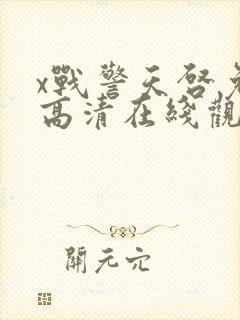 x戰警天啓免
高清在綫觀
開元穴